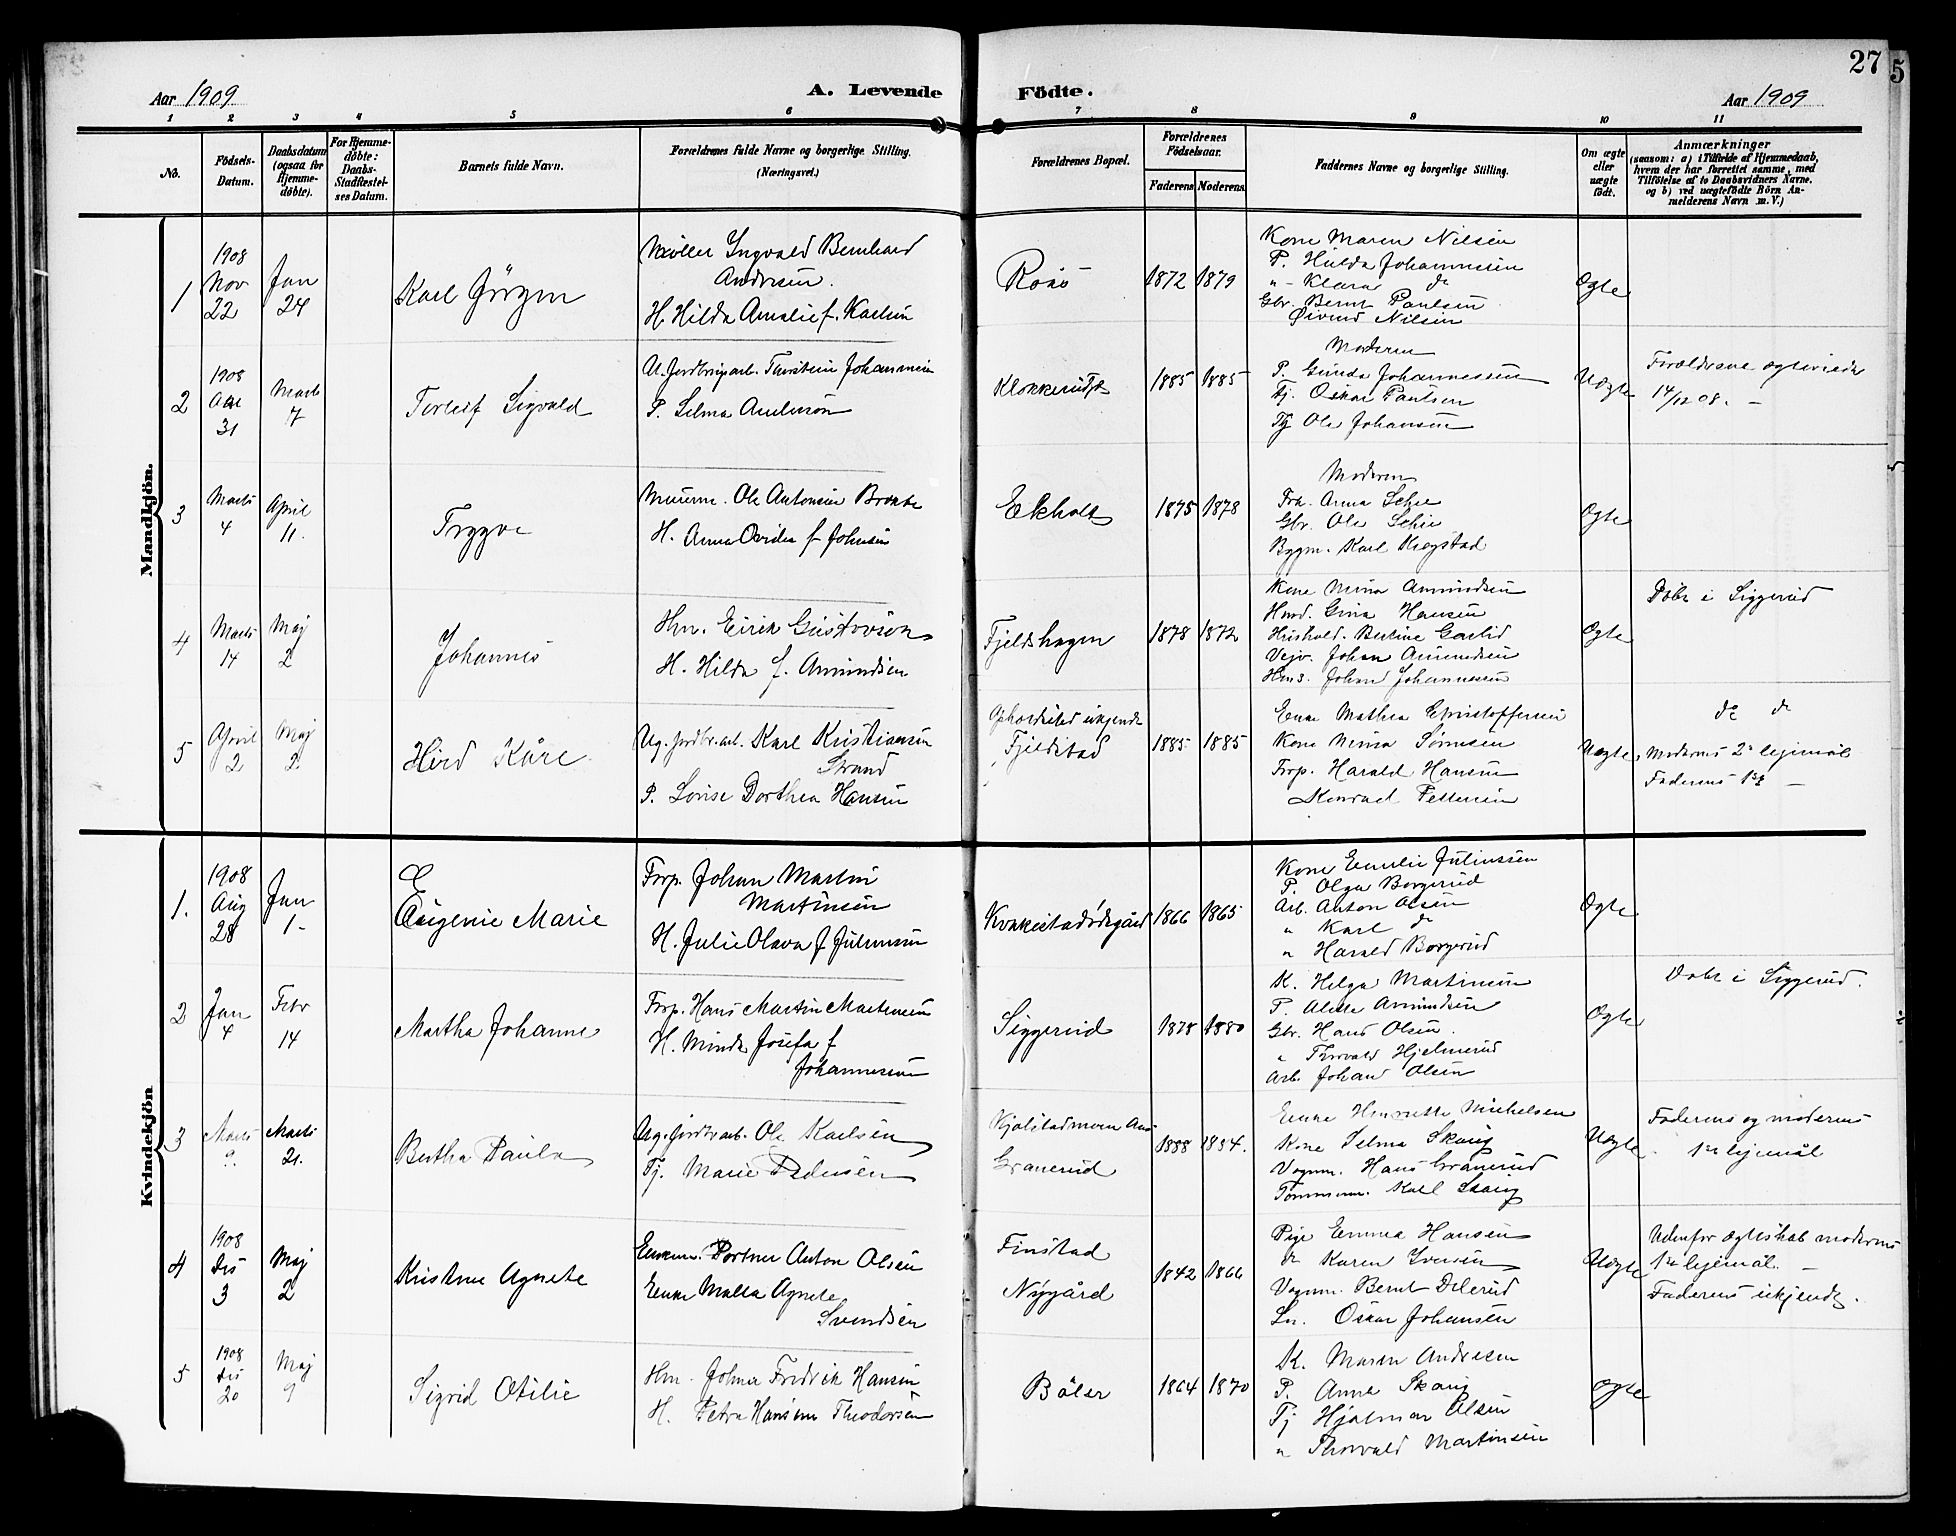 27
5
Aar 1909
A. Levende
Födte.
Aar 1909
1 2 3 4 5 6 7 8 9 10 11
No.
Födsels-
Datum.
Daabsdatum
(ogsaa for
Hjemme-
döbte).
For Hjemme-
döbte:
Daabs-
Stadfæstel-
ses Datum.
Barnets fulde Navn.
Forældrenes fulde Navne og borgerlige Stilling.
(Næringsvei.)
Forældrenes Bopæl.
Forældrenes
Födselsaar.
Faderens Moderens
Faddernes Navne og borgerlige Stilling.
Om ægte
eller
uægte
födt.
Anmærkninger
(saasom: a) i Tilfælde af Hjemmedaab,
hvem der har forrettet samme, med
Tilföielse af to Daabsvidners Navne.
og b) ved uægtefödte Börn An-
melderens Navn m.V.)
Mandkjön.
1
1908
Nov
22
Jan
24
Karl Jörgen
Möller Ingvald Bernhard
Andresen.
H. Hilda Amalie f. Karlsen
Roås
1872 1879
Kone Maren Nilsen
P. Hulda Johannesen
" - Klara do
Gbr. Bernt Paulsen
Øivind Nilsen
Ægte
2
1908
31
Marts
7
Torleif Sigvald
U. Jordbrugsarb. Thorstein Johannesen
P. Selma Andersen
1885 1885
Moderen
P. Gunda Johannessen
Tj. Oskar Paulsen
Tj Ole Johansen
Uægte
Forældrene ægteviede
14/12 08. -
3
Marts
4
April
11.
Trygve
Murerm. Ole Antonsen Braate
H. Anna Ovidia f. Johnsen
Ekholt
1875 1878
Moderen
Frk. Anna Schie
Gbr. Ole Schie
Bygm. Karl Kregstad
Ægte
4
Marts
14
Maj
2
Johannes
Hm. Eirik Gustavson
H. Hilda f. Amundsen
Fjeldshagen
1878 1872
Kone Mina Amundsen
Gina Hansen
Hushold. Bertine Garlid
Vejv. Johan Amundsen
Hms. Johan Johannessen
Ægte
Döbt i Siggerud
5
April
2
Maj
2
Hird Kåre
Ug. jordbr. arb. Karl Kristiansen
Strand
P. Lovise Dorthea Hansen
Opholdssted ukjendt
Fjeldstad
1885 1885
Enke Mathea Christoffersen
Kone Mina Simensen
Forp. Harald Hansen
Konrad Pettersen
Uægte
do do
Moderens 2det lejemål
Faderens 1ste -
Kvindekjön
1.
1908
Aug
28
Jan
1 -
E
Eugenie Marie
Forp. Johan Martin
Martinsen
H. Julie Olava f. Juliussen
Kvakestadødegård
1866 1865
Kone Emelie Juliussen
P. Olga Borgerud
Arb. Anton Olsen
" Karl do
" Harald Borgerud
Ægte
2
Jan
4
Febr
14
Martha Johanne
Forp. Hans Martin Martinsen
H. Minda Josefa f
Johannessen
Siggerud
1878 1880
K. Helga Martinsen
P. Alette Amundsen
Gbr. Hans Olsen.
" Thorvald Hjelmerud
Arb. Johan Olsen
Ægte
Döbt i Siggerud.
3
Marts
9.
Marts
21.
Bertha Paula
Ug. jordbr arb. Ole Karlsen
Tj. Marie Pedersen
Granerud
1888 1884.
Enke Henriette Michelsen
Kone Selma Skaug
Vognm. Hans Granerud
Tömmerm. Karl Skaug
Uægte.
Faderens og moderens
1ste lejemål
4
1908
Des
3
Maj
2
Kristine Agnete
Enkem. Portner Anton Olsen
Enke Malla Agnete
Svendsen
Finstad
Nygård
1842 1866
Pige Emma Hansen
do Karen Iversen
Vognm. Bernt Delerud
Sn. Oskar Johansen
Uægte
Udenfor ægteskab moderens
1ste lejemål. -
Faderens ukjendt.
5
1908
Des
20
Maj
9
Sigrid Otilie
Hm. Johner Fredrik Hansen
H. Petra Hansine Theodorsen
Bøler
1864 1870
K. Maren Andresen
P. Anna Skaug
Tj Hjalmar Olsen
" Thorvald Martinsen
Ægte